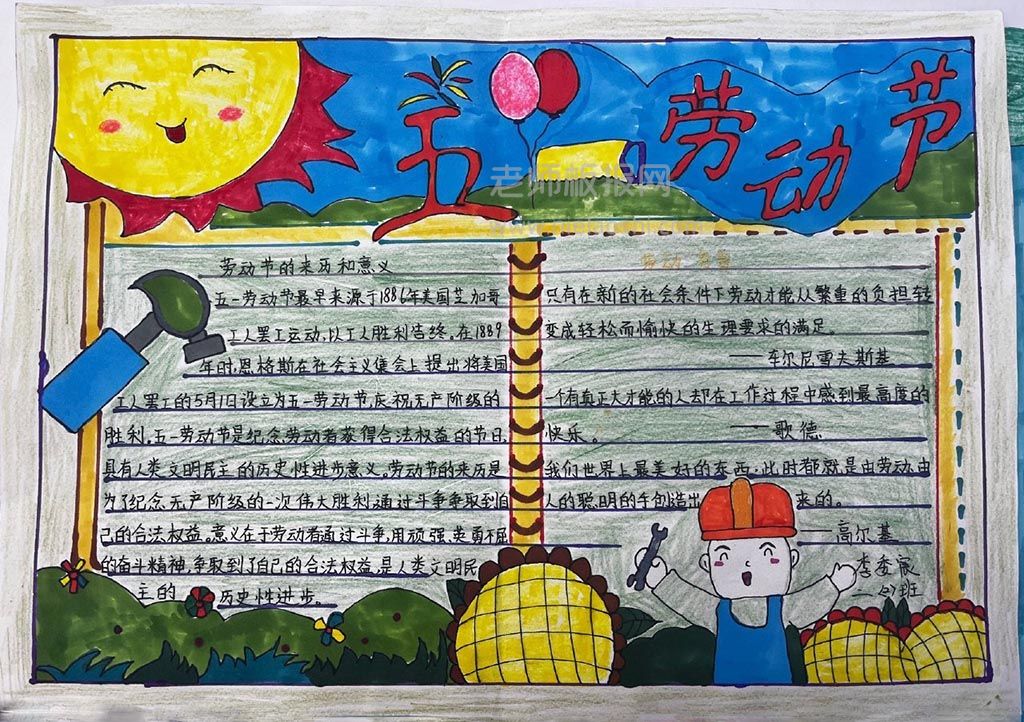 五一劳动节
老师板报网
劳动节的来历和意义
五一劳动节最早来源于1886年美国芝加哥
工人罢工运动,以工人胜利告终。在1889
年时,恩格斯在社会主义集会上提出将美国
工人罢工的5月1日设立为五一劳动节,庆祝无产阶级的
胜利。五一劳动节是纪念劳动者获得合法权益的节日,
具有人类文明民主的历史性进步意义。劳动节的来历是
为了纪念无产阶级的一次伟大胜利,通过斗争争取到自
己的合法权益。意义在于劳动者通过斗争,用顽强、英勇不屈
的奋斗精神,争取到了自己的合法权益,是人类文明民
主的 历史性进步。
劳动
只有在新的社会条件下劳动才能从繁重的负担转
变成轻松而愉快的生理要求的满足。
——车尔尼雪夫斯基
一个有真正大才能的人却在工作过程中感到最高度的
快乐。 ——歌德
我们世界上最美好的东西,此时都就是由劳动、由
人的聪明的手创造出 来的。
——高尔基
李
二(2)班